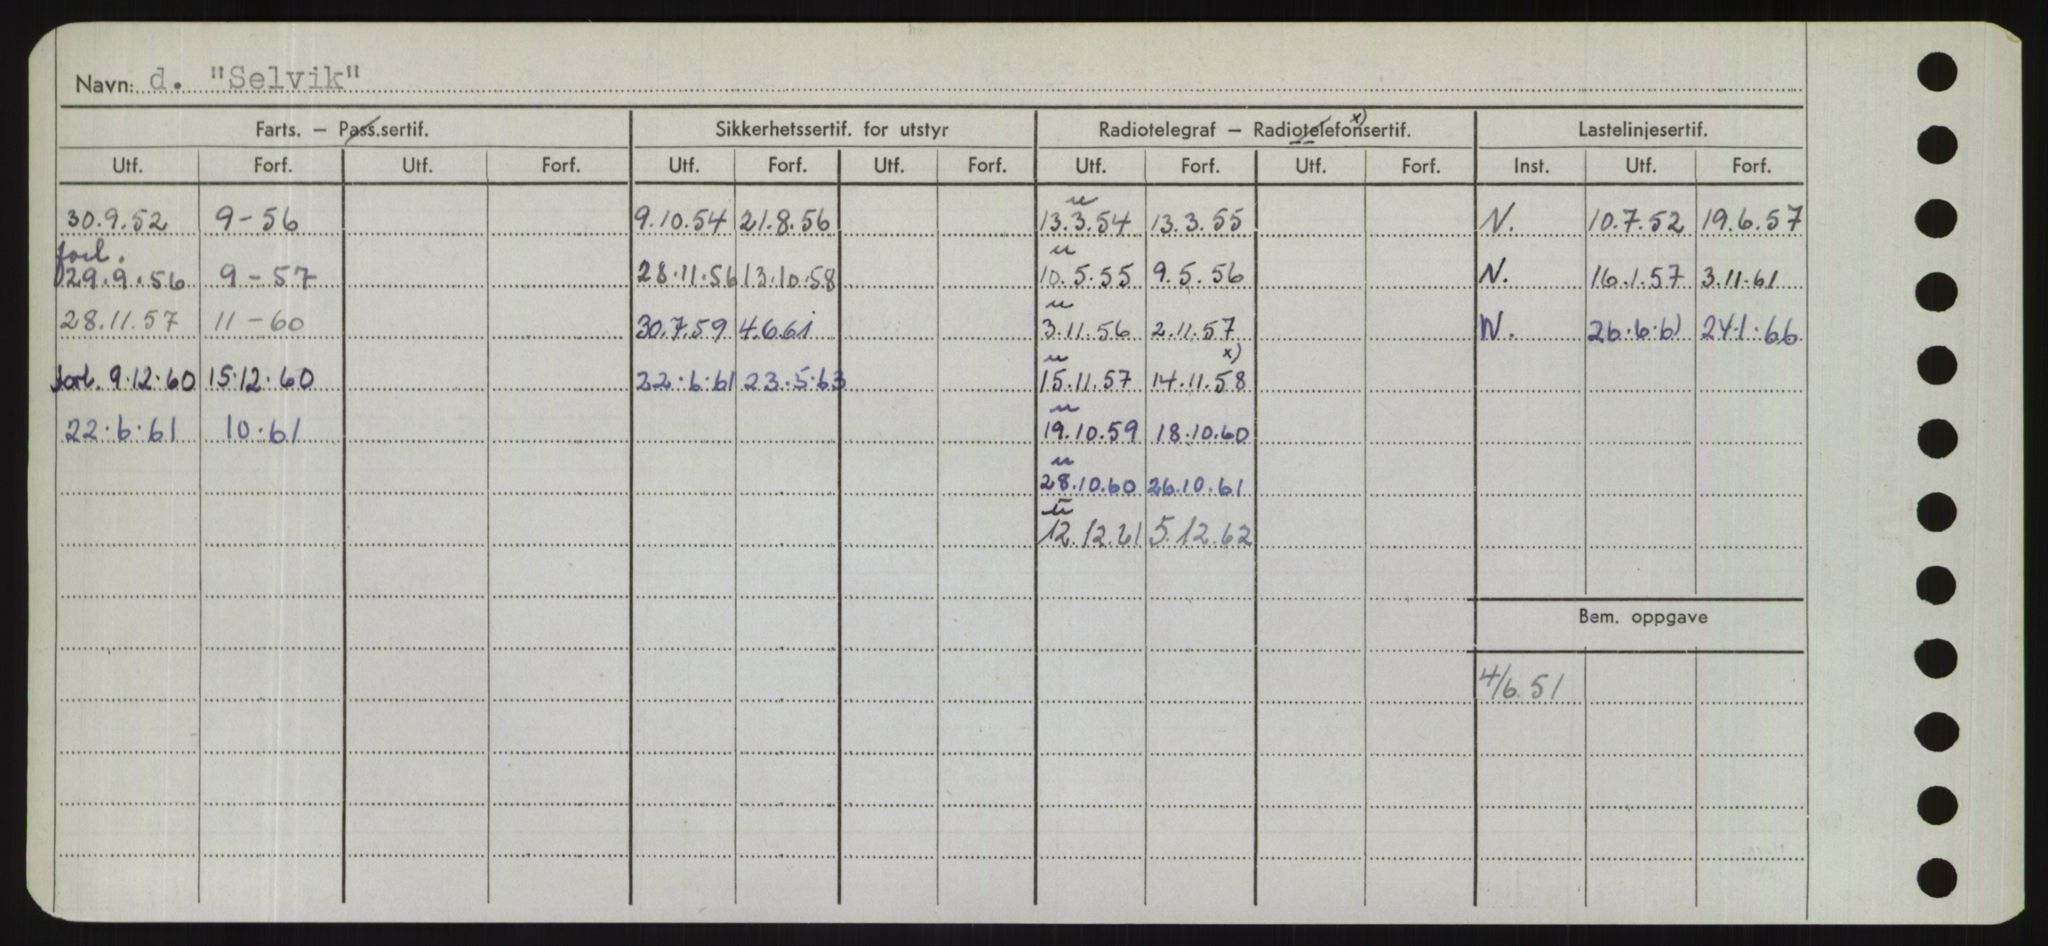 Navn: d. "Selvik"
Farts. – Pass.sertif. Sikkerhetssertif. for utstyr Radiotelegraf – Radiotelefonsertif. x) Lastelinjesertif.
Utf. Forf. Utf. Forf. Utf. Forf. Utf. Forf. Utf. Forf. Utf. Forf. Inst. Utf. Forf.
u
30.9.52 9-56 9.10.54 21.8.56 13.3.54 13.3.55 N. 10.7.52 19.6.57
forl. u
29.9.56 9-57 28.11.56 13.10.58 10.5.55 9.5.56 N. 16.1.57 3.11.61
u
28.11.57 11-60 30.7.59 4.6.61 3.11.56 2.11.57 N. 26.6.61 24.1.66
u x)
forl. 9.12.60 15.12.60 22.6.61 23.5.63 15.11.57 14.11.58
u
22.6.61 10.61 19.10.59 18.10.60
u
28.10.60 26.10.61
u
12.12.61 5.12.62
Bem. oppgave
4/6.51